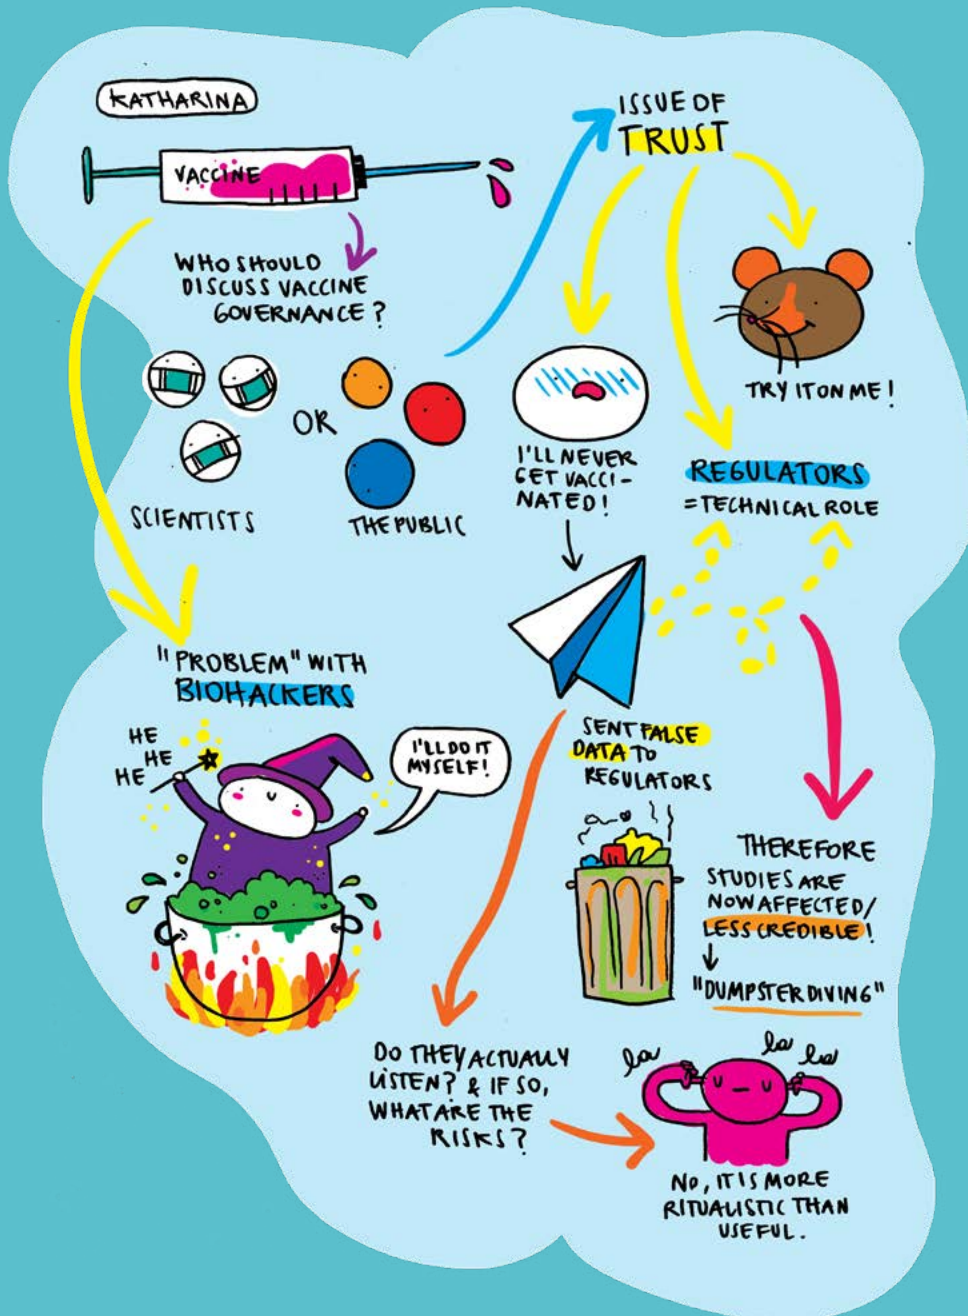 KATHARINA
VACCINE
WHO SHOULD
DISCUSS VACCINE
GOVERNANCE?
SCIENTISTS
OR
THE PUBLIC
ISSUE OF
TRUST
I'LL NEVER
GET VACCI-
NATED!
TRY IT ON ME!
REGULATORS
=TECHNICAL ROLE
"PROBLEM" WITH
BIOHACKERS
HE
HE
HE
I'LL DO IT
MYSELF!
SENT FALSE
DATA TO
REGULATORS
THEREFORE
STUDIES ARE
NOW AFFECTED/
LESS CREDIBLE!
"DUMPSTER DIVING"
DO THEY ACTUALLY
LISTEN? & IF SO,
WHAT ARE THE
RISKS?
la la la
NO, IT IS MORE
RITUALISTIC THAN
USEFUL.